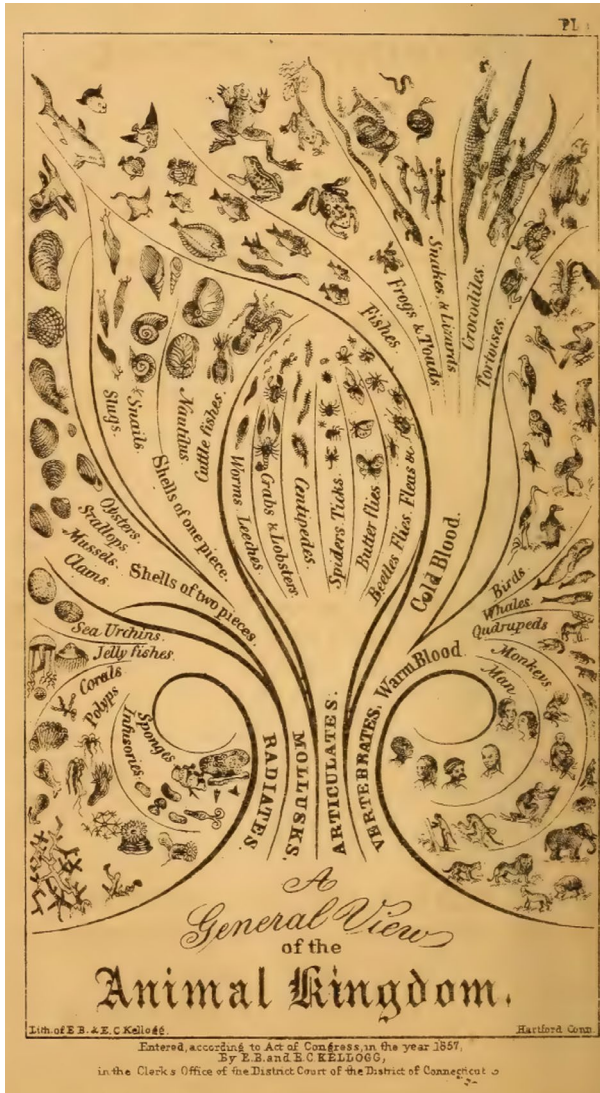 PL
Fishes.
Frogs & Touds
Snakes, & Lizards
Crocodiles.
Tortoises.
Slugs.
Snails.
Nautilus.
Cuttle fishes.
Shells of one piece.
Worms Leeches.
Crabs & Lobsters
Centipedes.
Spiders. Ticks.
Butter flies.
Beetles Flies. Fleas &c.
Cold Blood.
Obsters.
Scallops
Mussels.
Clams.
Shells of two pieces.
Birds
Whales
Quadrupeds
Monkeys
Man.
Warm Blood.
Sea Urchins.
Jelly fishes.
Corals
Polyps
Sponges
Infusories.
RADIATES.
MOLLUSKS.
ARTICULATES.
VERTEBRATES.
A
General View
of the
Animal Kingdom.
Lith. of E B. & E. C Kellogg.
Hartford Conn.
Entered, according to Act of Congress, in the year 1857,
By E. B. and E. C. KELLOGG,
in the Clerks Office of the District Court of the District of Connecticut